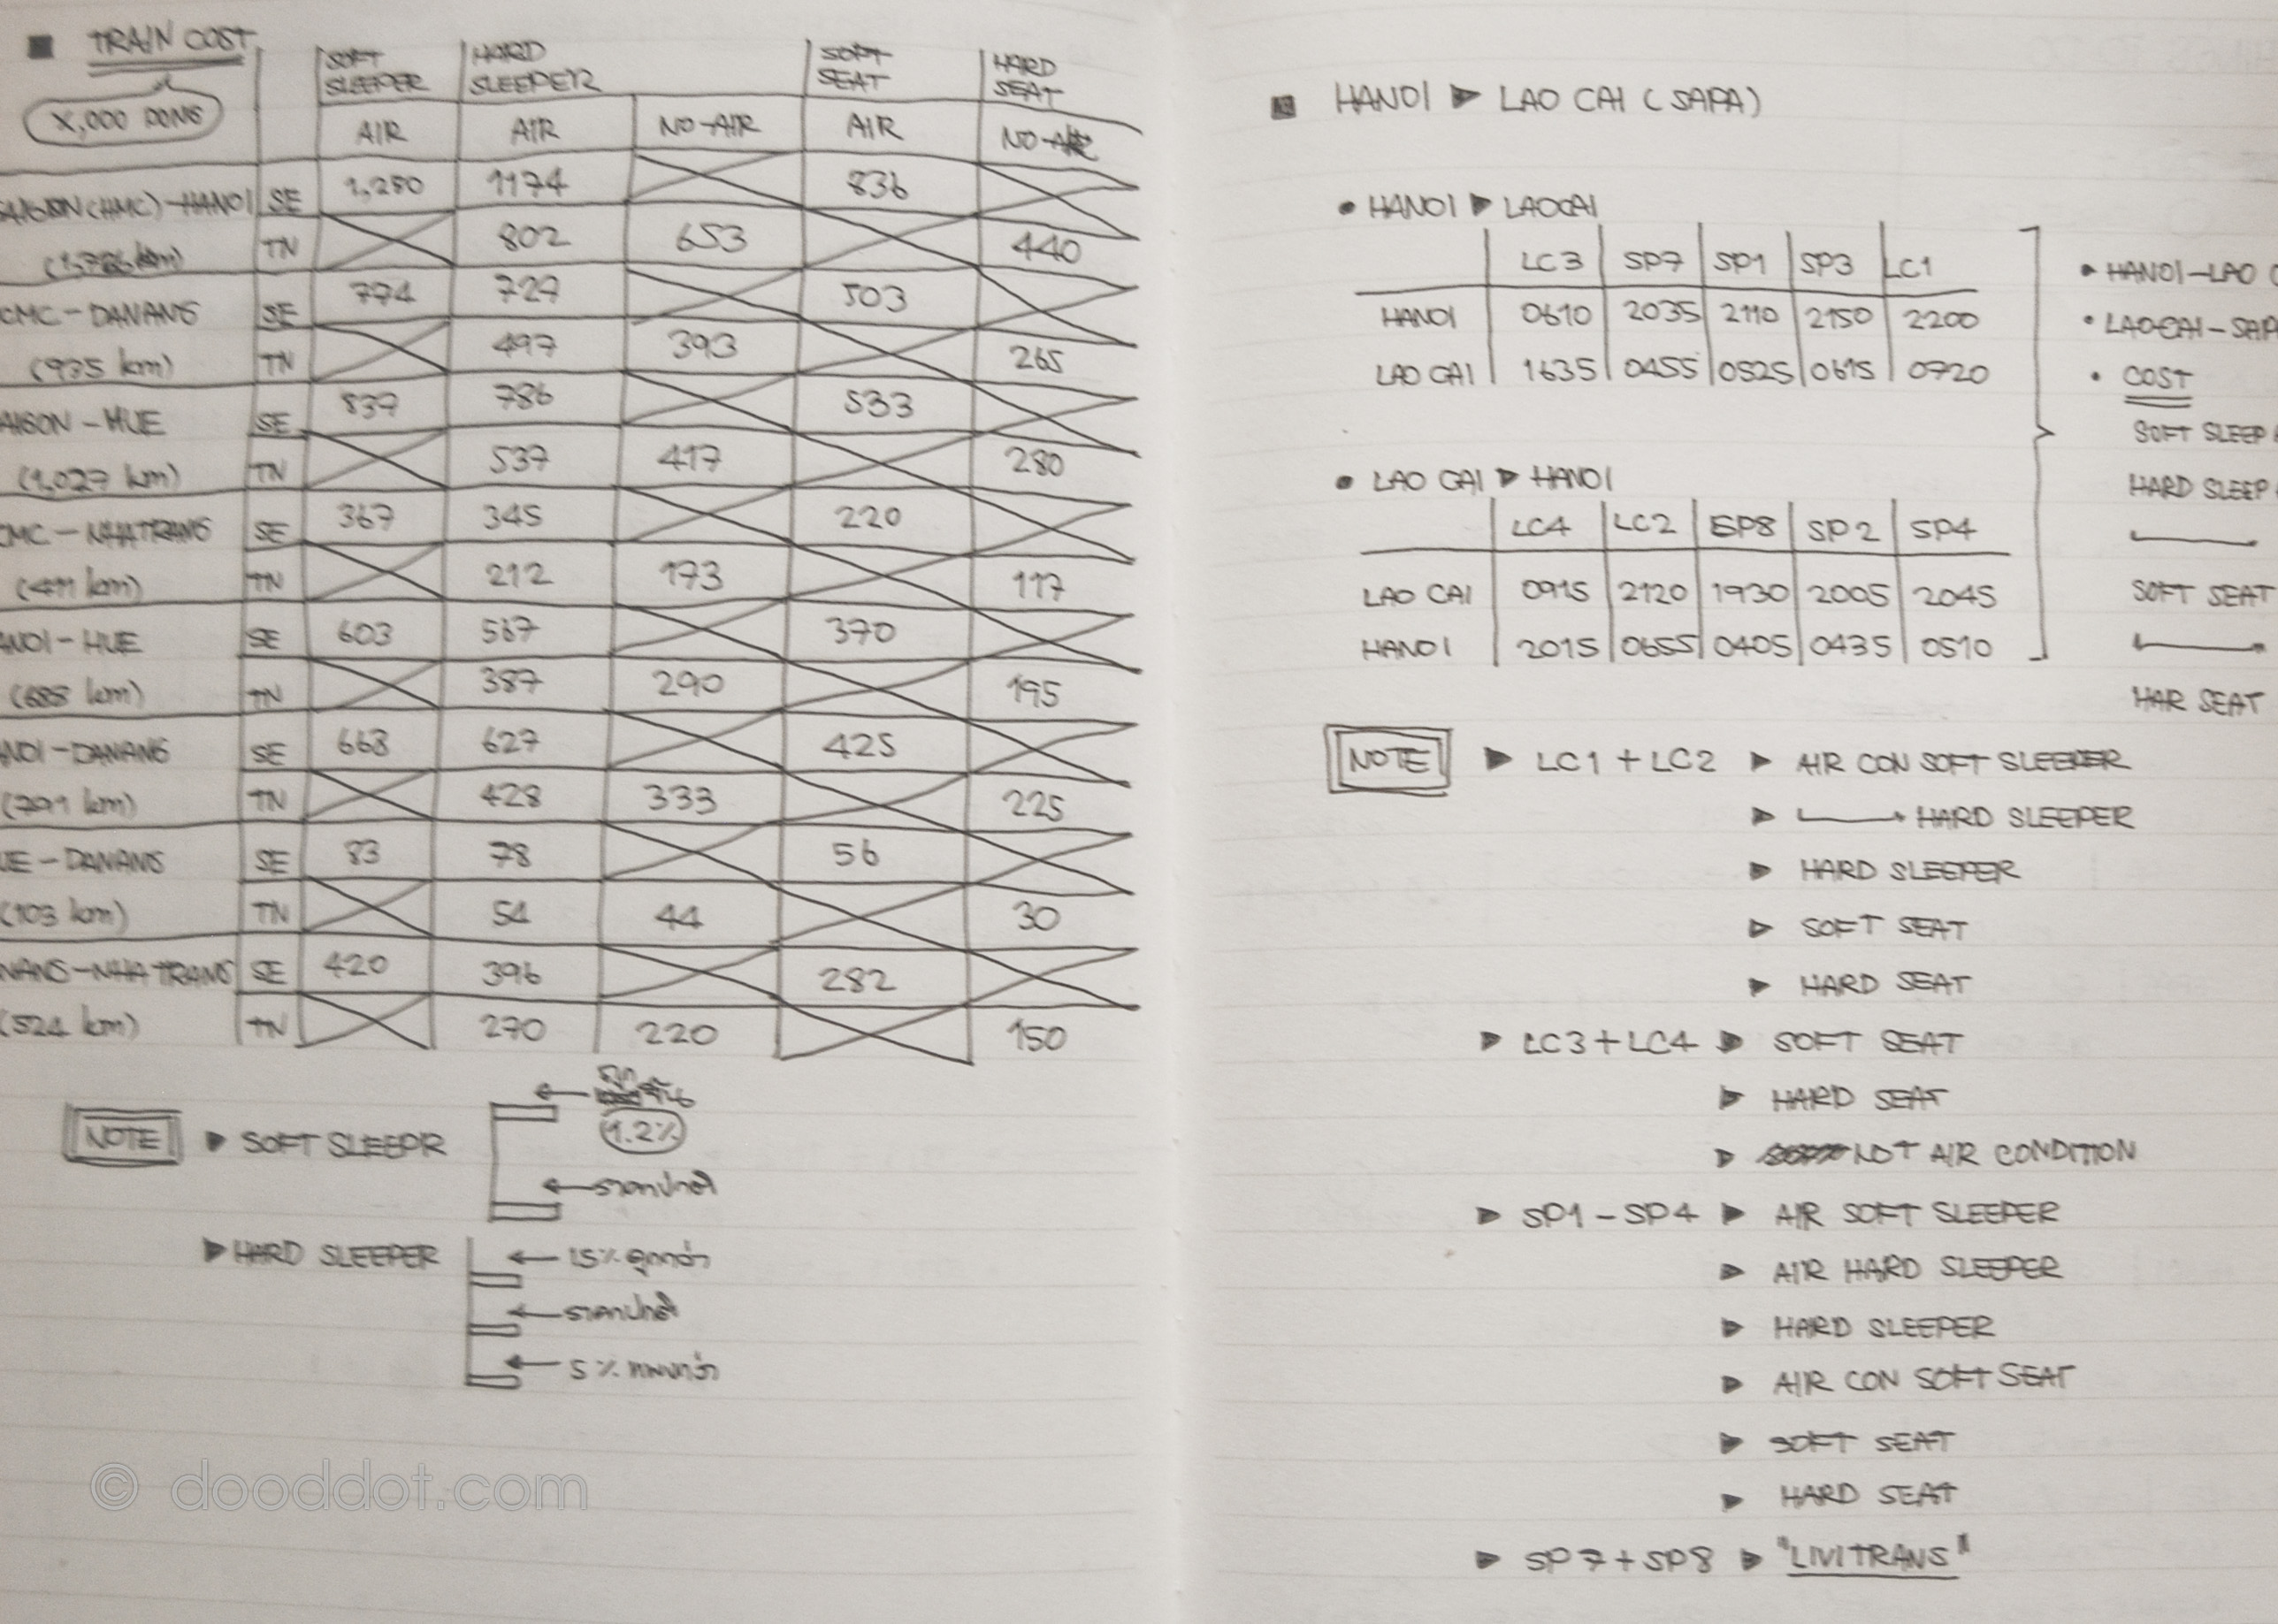 TRAIN COST
X,000 DONG
SOFT SLEEPER HARD SLEEPER SOFT SEAT HARD SEAT
AIR AIR NO-AIR AIR NO-AIR
SAIGON (HMC) - HANOI SE 1,280 1174 836
(1,726 km) TN 802 653 440
CMC - DANANG SE 774 729 503
(935 km) TN 497 393 265
AIGON - HUE SE 837 786 533
(1,027 km) TN 537 417 280
CMC - NHATRANG SE 367 345 220
(411 km) TN 212 173 117
ANOI - HUE SE 603 567 370
(688 km) TN 387 290 195
NOI - DANANG SE 668 627 425
(791 km) TN 428 333 225
UE - DANANG SE 83 78 56
(103 km) TN 54 44 30
NANG - NHA TRANG SE 420 396 282
(524 km) TN 270 220 150
NOTE SOFT SLEEPR
ถูก
1.2%
ราคาปกติ
HARD SLEEPER
15% ถูกกว่า
ราคาปกติ
5% แพงกว่า
© dooddot.com
HANOI ▶ LAO CAI (SAPA)
• HANOI ▶ LAOCAI
LC3 SP7 SP1 SP3 LC1
HANOI 0610 2035 2110 2150 2200
LAO CAI 1635 0455 0525 0615 0720
• LAO CAI ▶ HANOI
LC4 LC2 SP8 SP2 SP4
LAO CAI 0915 2120 1930 2005 2045
HANOI 2015 0655 0405 0435 0510
• HANOI - LAO C
• LAOCAI - SAP
• COST
SOFT SLEEP
HARD SLEEP
SOFT SEAT
HAR SEAT
NOTE ▶ LC1 + LC2 ▶ AIR CON SOFT SLEEPER
▶ HARD SLEEPER
▶ HARD SLEEPER
▶ SOFT SEAT
▶ HARD SEAT
▶ LC3 + LC4 ▶ SOFT SEAT
▶ HARD SEAT
▶ NOT AIR CONDITION
▶ SP1 - SP4 ▶ AIR SOFT SLEEPER
▶ AIR HARD SLEEPER
▶ HARD SLEEPER
▶ AIR CON SOFT SEAT
▶ SOFT SEAT
▶ HARD SEAT
▶ SP7 + SP8 ▶ "LIVITRANS"